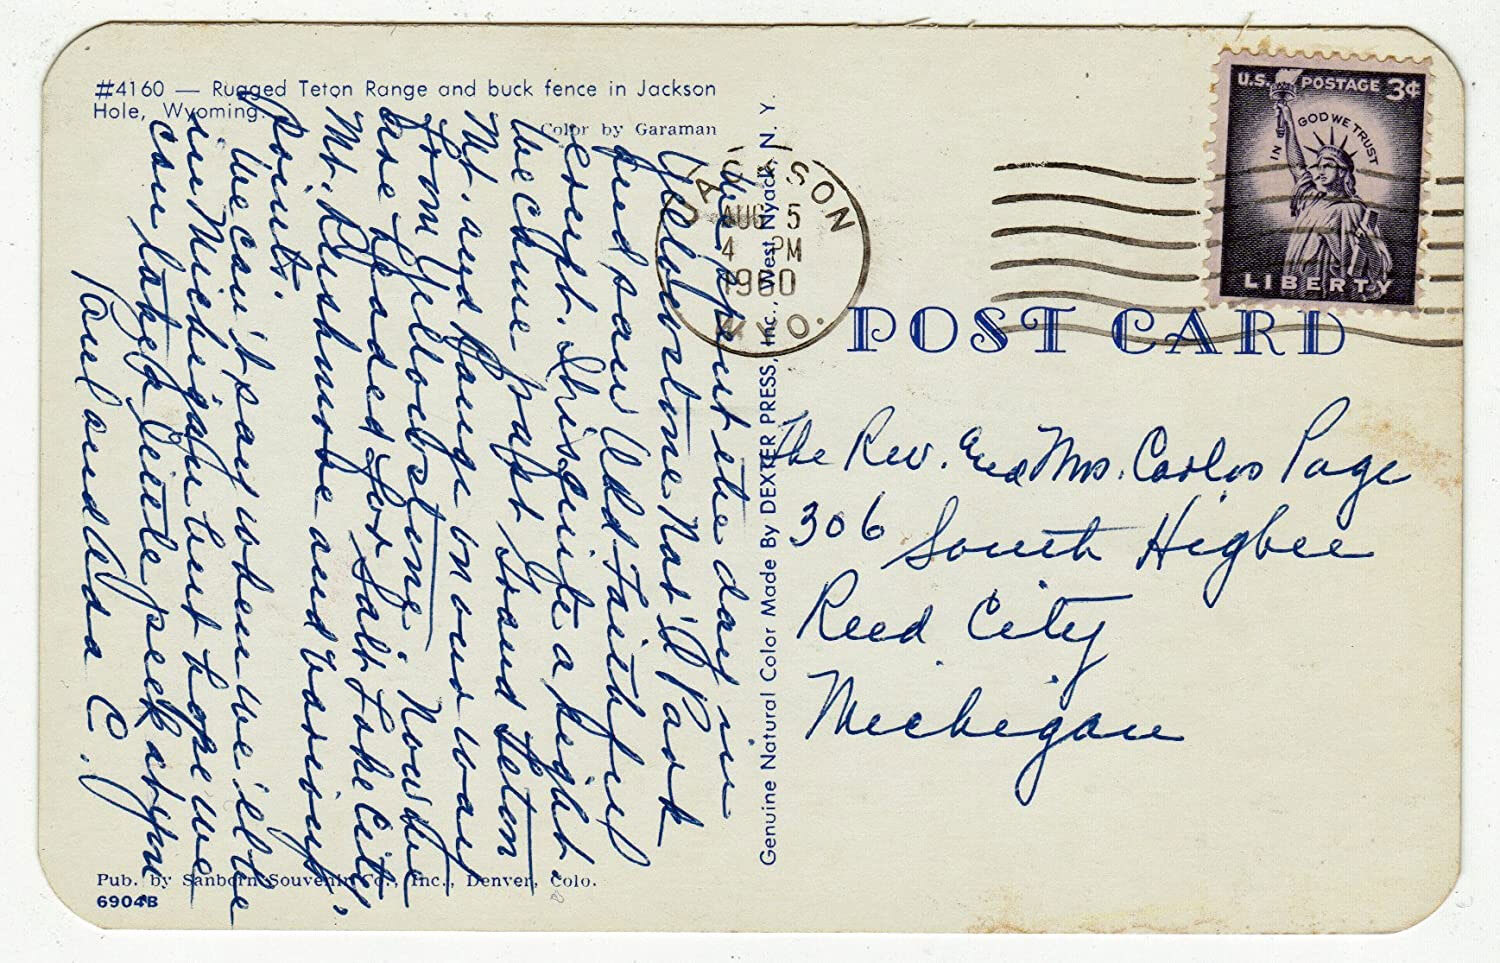 #4160 — Rugged Teton Range and buck fence in Jackson
Hole, Wyoming.
Color by Garaman
We spent the day in
Yellowstone Nat'l Park
and saw Old Faithful
erupt. It is quite a sight.
We came past Grand Teton
Mt. and Range on our way
from Yellowstone. Now we
are headed for Salt Lake City,
Mt. Rushmore and various
points.
We can't say when we'll be
in Michigan but hope we
can take a little peek at you
Paul and Ada C.
Pub. by Sanborn Souvenir Co., Inc., Denver, Colo.
6904B
Genuine Natural Color Made By DEXTER PRESS, Inc., West Nyack, N. Y.
JACKSON
AUG 5
4 PM
1960
WYO.
U.S. POSTAGE 3¢
IN GOD WE TRUST
LIBERTY
POST CARD
The Rev. and Mrs. Carlos Page
306 South Higbee
Reed City
Michigan